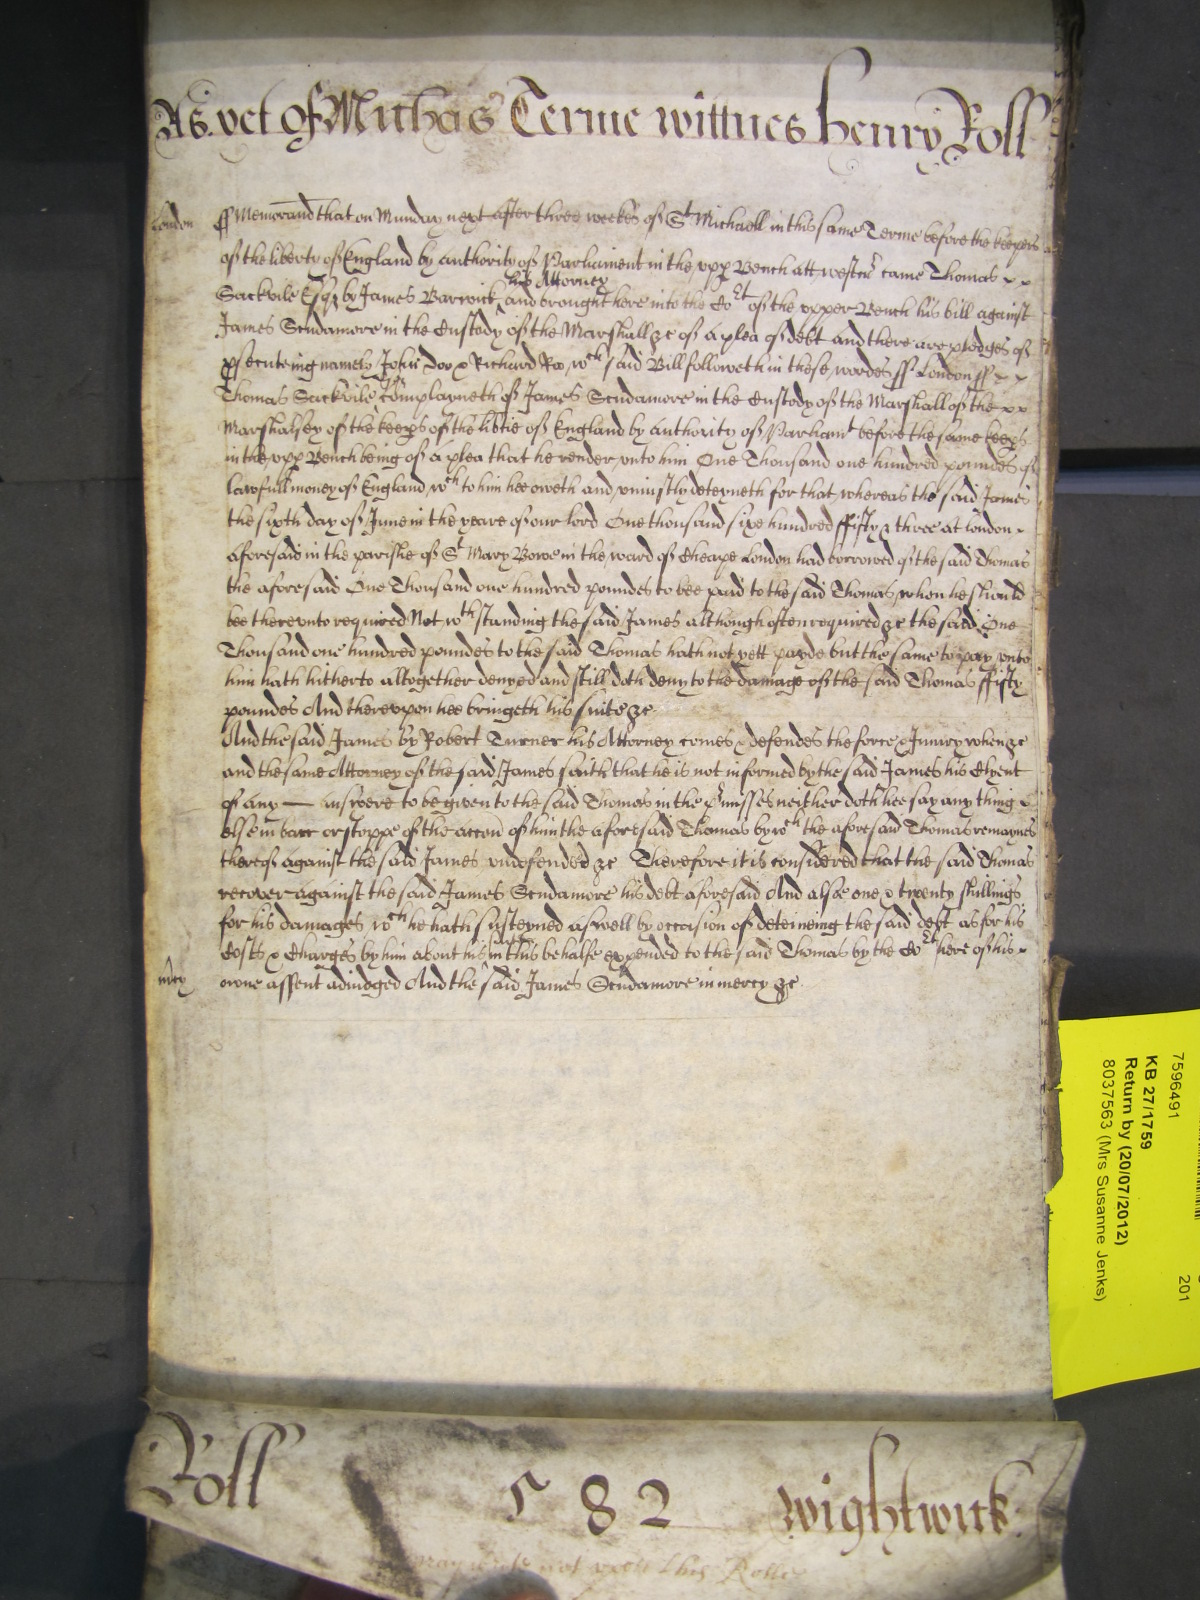 As yet of Michas Terme wittnes henry Roll
London ff Memorand that on Munday next after three weekes of St Michaell in this same Terme before the keepers
of the liberty of England by authority of Parliament in the vpp Bench att westmr came Thomas
Sackvile Esqr by James Barwick his Attorney and brought here into the Cort of the vpper Bench his bill against
James Scudamore in the Custody of the Marshall &c of a plea of debt and there are pledges of
psecuteing namely John Doo & Richard Roo, wch said Bill followeth in these wordes ff London ff
Thomas Sackvile Complayneth of James Scudamore in the Custody of the Marshall of the
Marshalsey of the keeps of the libtie of England by Authority of Parliamt before the same keeps
in the vpp Bench being of a plea that he render vnto him One Thousand one hundred poundes of
lawfull money of England wch to him hee oweth and vniustly deteyneth for that whereas the said James
the sixth day of June in the yeare of our lord One thousand sixe hundred ffifty & three at London
aforesaid in the parishe of St Mary Bowe in the ward of Cheape London had borrowed of the said Thomas
the aforesaid One Thousand one hundred poundes to bee paid to the said Thomas when he should
bee therevnto required Not wthstanding the said James although often required &c the said One
Thousand one hundred poundes to the said Thomas hath not yett payde but the same to pay vnto
him hath hitherto altogether denyed and still doth deny to the damage of the said Thomas ffifty
poundes And therevpon hee bringeth his suite &c
And the said James by Robert Turner his Attorney comes & defendes the force & Iniury when &c
and the same Attorney of the said James saith that he is not informed by the said James his Clyent
of any answere to be given to the said Thomas in the pmisses neither doth hee say any thing
else in barr or stoppe of the accon of him the aforesaid Thomas by wch the aforesaid Thomas remaynes
thereof against the said James vndefended &c Therefore it is considered that the said Thomas
recover against the said James Scudamore his debt aforesaid And alsoe one & twenty shillings
for his damages wch he hath susteyned aswell by occasion of deteineing the said debt as for his
Costs & Charges by him about his suite in this behalfe expended to the said Thomas by the Cort here of his
mcy owne assent adiudged And the said James Scudamore in mercy &c
Roll 582 Wightwick
not this Rolle
7596491
KB 27/1759
Return by (20/07/2012)
8037563 (Mrs Susanne Jenks)
201